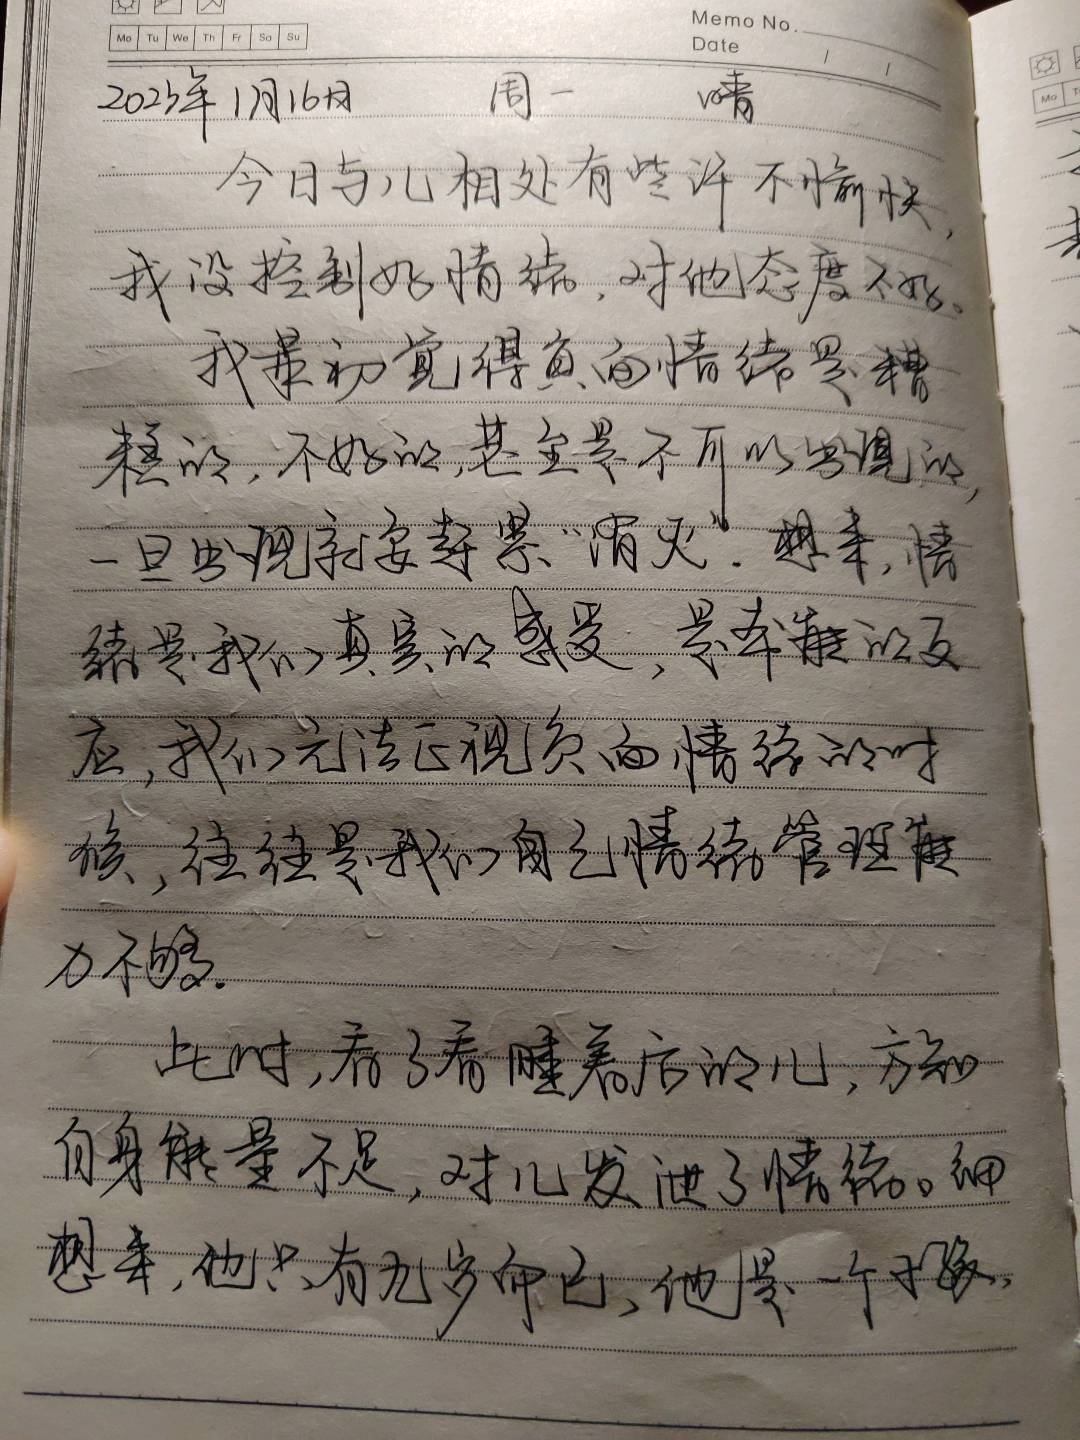 Memo No.
Mo Tu We Th Fr Sa Su
Date / /
Mo
2023年1月16日 周一 晴
今日与儿相处有些许不愉快,
我没控制好情绪,对他态度不好。
我最初觉得负面情绪是糟
糕的,不好的,甚至是不可以出现的,
一旦出现就要马上“消灭”.想来,情
绪是我们真实的感受,是本能的反
应,我们无法正视负面情绪的时
候,往往是我们自己情绪管理能
力不够.
此时,看了看睡着后的儿,方知
自身能量不足,对儿发泄了情绪。细
想来,他只有九岁而已,他是一个小孩,